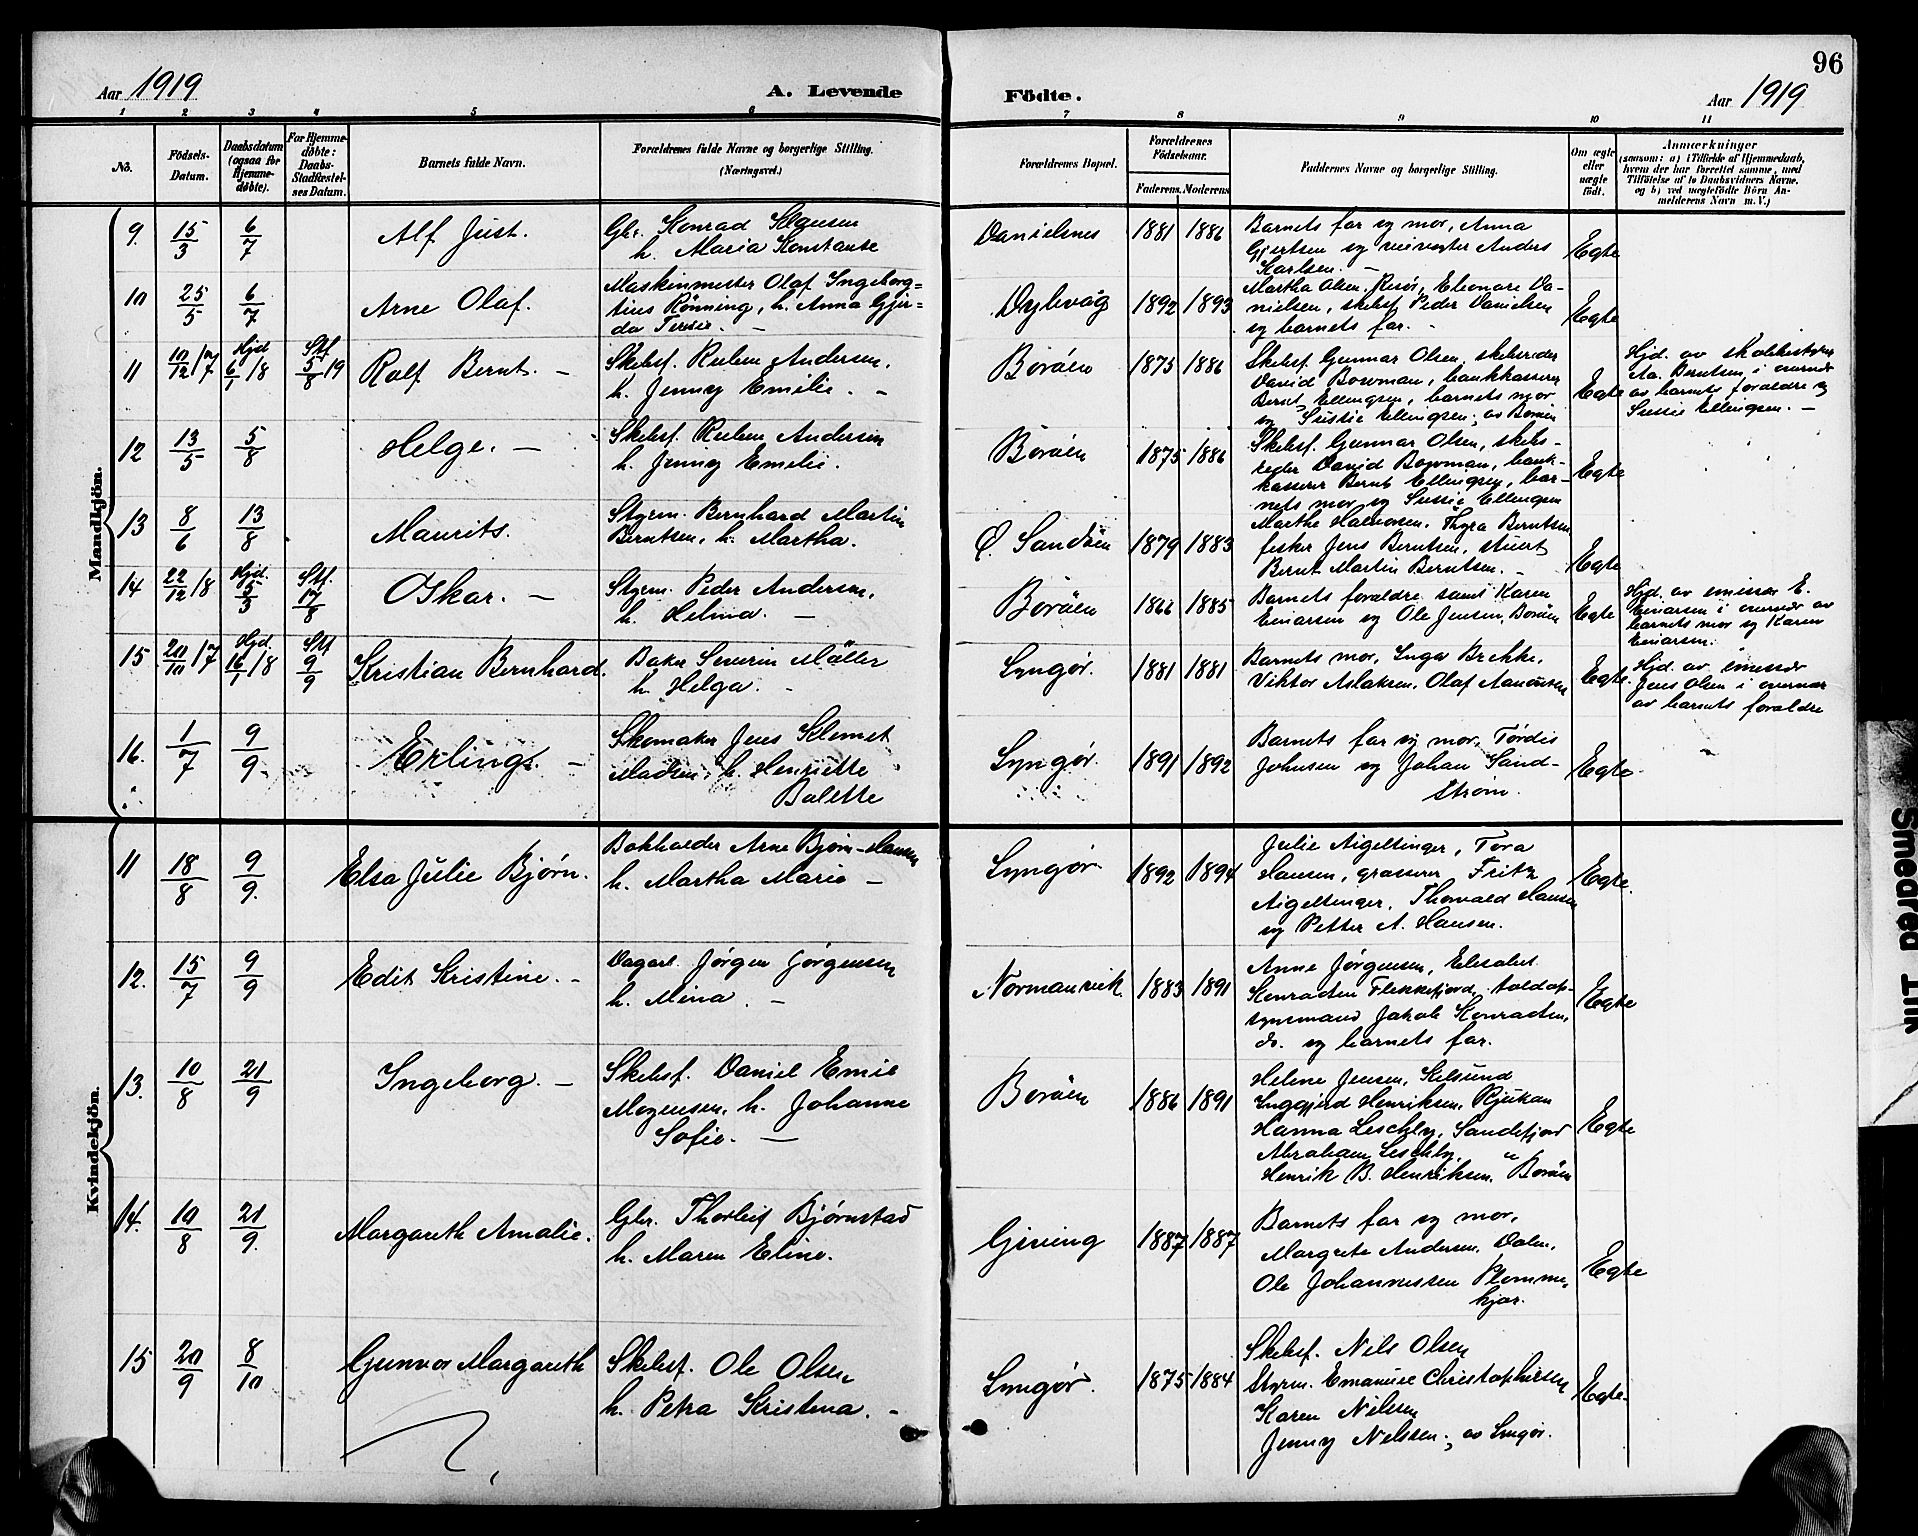 96
Aar 1919
A. Levende
Födte.
Aar 1919
1 2 3 4 5 6 7 8 9 10 11
No.
Födsels-
Datum.
Daabsdatum
(ogsaa for
Hjemme-
døbte).
For Hjemme-
døbte:
Daabs-
Stadfæstel-
ses Datum.
Barnets fulde Navn.
Forældrenes fulde Navne og borgerlige Stilling.
(Næringsvei.)
Forældrenes Bopæl.
Forældrenes
Födselsaar.
Faderens. Moderens.
Faddernes Navne og borgerlige Stilling.
Om ægte
eller
uægte
födt.
Anmærkninger
(saasom: a) i Tilfælde af Hjemmedaab,
hvem der har forrettet samme, med
Tilföielse af to Daabsvidners Navne,
og b) ved uægtefödte Börn An-
melderens Navn m. V.)
Mandkjön.
9. 15/3 6/7 Alf Just.
Gbr. Konrad Klausen
h. Maria Konstanse
Danielnes 1881 1886
Barnets far og mor, Anna
Gjertsen og veivogter Anders
Karlsen. —
Egte
10 25/5 6/7 Arne Olaf.
Maskinmester Olaf Ingeborg=
tius Rönning, h. Anna Gjur-
da Terese. —
Dybvåg 1892 1893
Martha Olsen, Risör, Eleonore Da-
nielsen, skibsf. Peder Danielsen
og barnets far. -
Egte
11 10/12 17 Hjd. 6/1 18 Stf. 5/8 19 Rolf Bernt. —
Skibsf. Ruben Andersen,
h. Jenny Emilie. -
Boröen 1875 1886
Skibsf. Gunnar Olsen, skibsreder
David Bowman, bankkasserer
Bernt Ellingsen, barnets mor
og Sussie Ellingsen, av Borøen
Egte
Hjd. av skolebestyrer
Aa. Berntsen i overvær
av barnets foraldre og
Sussie Ellingsen. —
12 13/5 5/8 Helge. —
Skibsf. Ruben Andersen
h. Jenny Emelie.
Boröen 1875 1886
Skibsf. Gunnar Olsen, skibs-
reder David Bowman, bank-
kasserer Bernt Ellingsen, bar-
nets mor og Sussie Ellingsen
Egte
13 8/6 13/8 Maurits.
Styrm. Bernhard Martin
Berntsen, h. Martha.
Ö. Sandöen 1879 1883
Marthe Halvorsen, Thyra Berntsen
fisker Jens Berntsen, stuert
Bernt Martin Berntsen. -
Egte
14 22/12 18 Hjd. 5/3 Stf. 17/8 Oskar. —
Styrm. Peder Andersen,
h. Helma. —
Boröen 1866 1885
Barnets foraldre samt Karen
Einarsen og Ole Jensen, Borøen
Egte
Hjd. av emissær E.
Einarsen i overvær av
barnets mor og Karen
Einarsen.
15 20/10 17 Hjd. 16/1 18 Stf 9/9 Kristian Bernhard.
Baker Severin Möller
h. Helga. -
Lyngør. 1881 1881
Barnets mor, Inga Brekke,
Viktor Aslaksen, Olaf Aanonsen
Egte.
Hjd. av emissær
Jens Olsen i overvær
av barnets foraldre
16. 1/7 9/9. Erling. —
Skomaker Jens Klemet
Madsen, h. Henriette
Bolette
Lyngør. 1891 1892
Barnets far og mor, Tordis
Johnsen og Johan Sand-
strøm.
Egte.
Kvindekjön.
11 18/8 9/9. Elsa Julie Bjørn.
Bokholder Arne Bjørn-Hansen
h. Martha Marie —
Lyngør 1892 1894
Julie Aigeltinger, Tora
Hansen, grosserer Fritz
Aigeltinger, Thorvald Hansen
og Petter A. Hansen.
Egte.
12. 15/7 9/9 Edit Kristine. -
Dagarb. Jørgen Jørgensen
h. Mina. -
Normannvik 1883 1891
Anne Jørgensen, Elisabet
Konradsen Flekkefjord, toldop-
synsmand Jakob Konradsen,
do. og barnets far.
Egte
13. 10/8 21/9 Ingeborg. —
Skibsf. Daniel Emil
Mogensen, h. Johanne
Sofie. —
Boröen 1886 1891
Helene Jensen, Kilsund
Inggjerd Henriksen, Rjukan
Hanna Leschly, Sandefjord
Abraham Leschly, "
Henrik B. Henriksen, Borøen
Egte
14. 10/8 21/9. Margareth Amalie.
Gbr. Thorleif Bjørnstad
h. Maren Eline.
Gjeving 1887 1887
Barnets far og mor,
Margrete Andersen, Dalen,
Ole Johannessen Plomme-
kjær.
Egte
15 20/9 8/10 Gunvor Margareth
Skibsf. Ole Olsen
h. Petra Kristina. -
Lyngør. 1875 1884
Skibsf. Nils Olsen
Styrm. Emanuel Christophersen
Karen Nilsen
Jenny Nilssen, av Lyngør.
Egte.
Smeared Ink